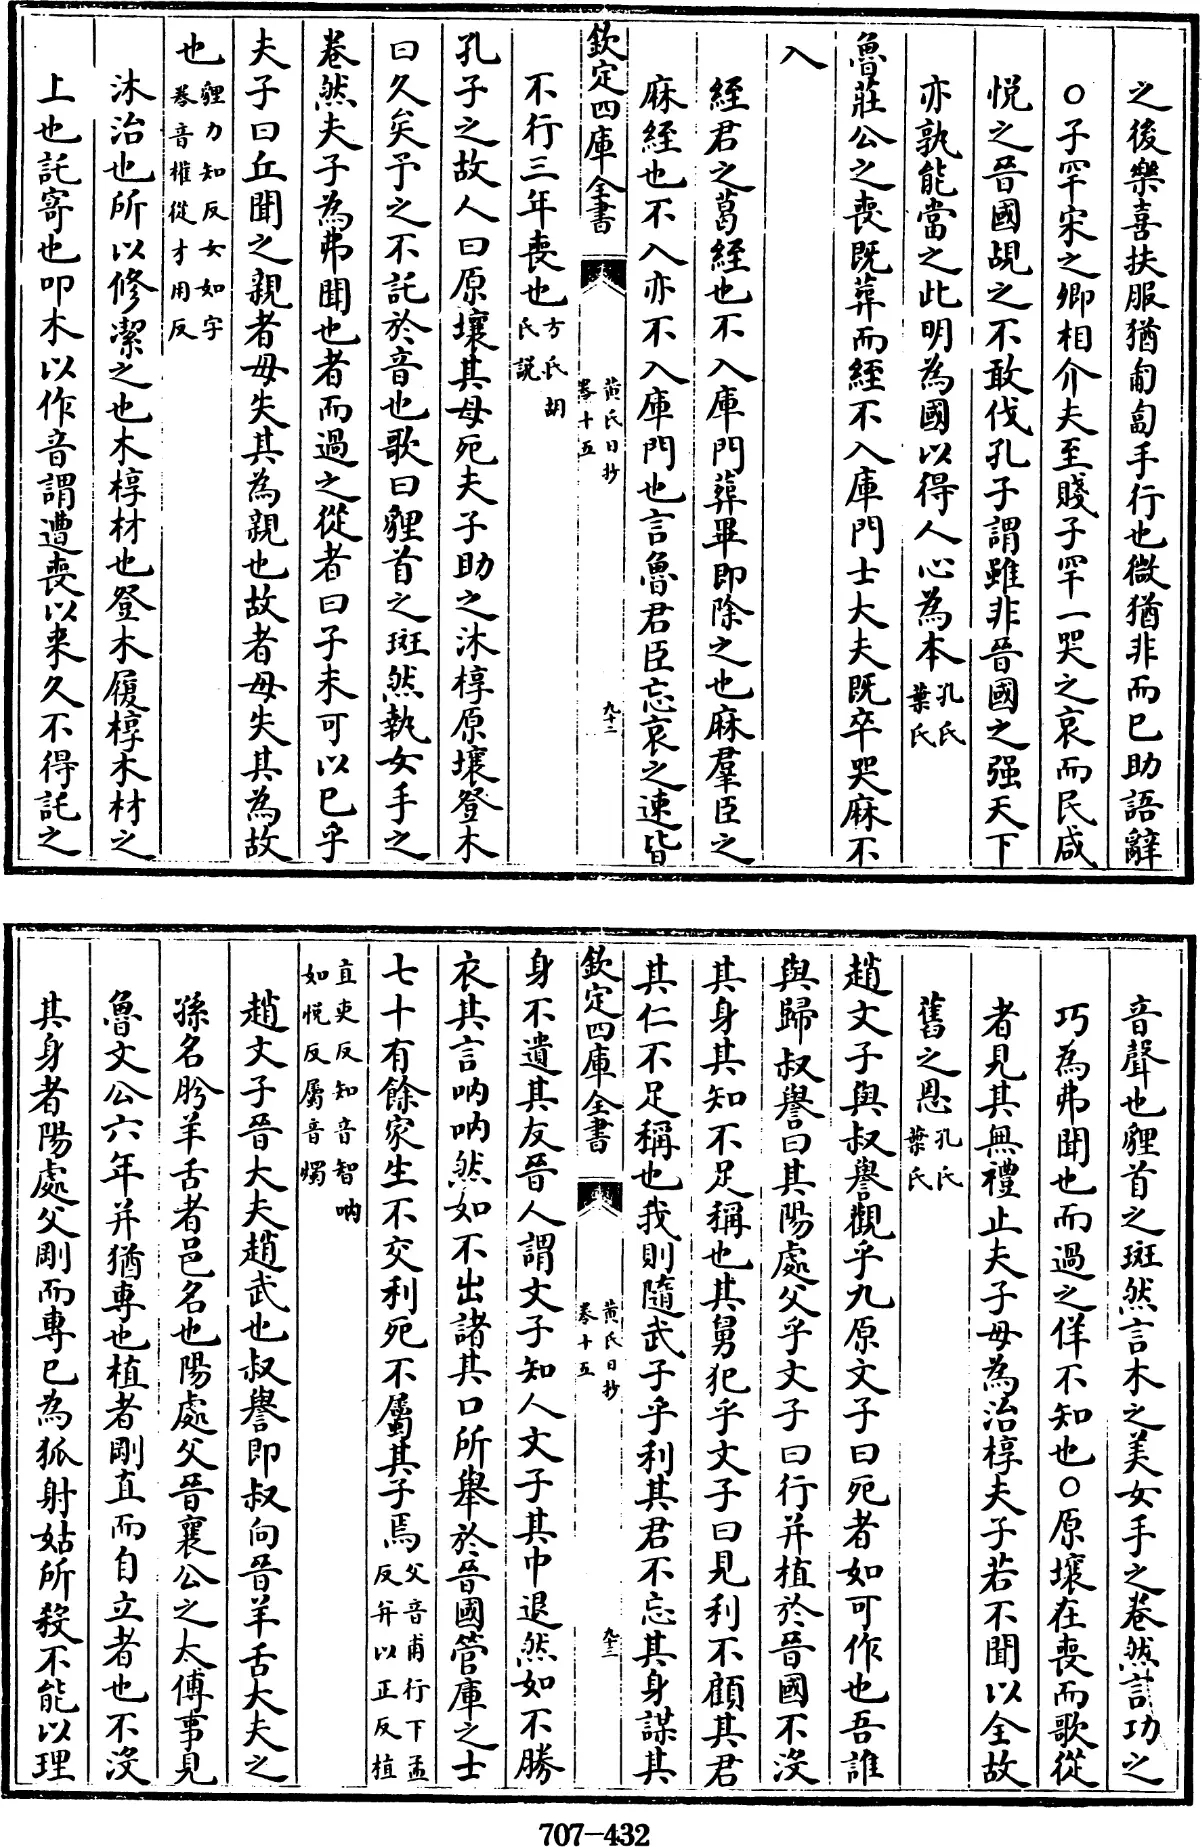 之後樂喜扶服猶匍匐手行也微猶非而已助語辭
○子罕宋之卿相介夫至賤子罕一哭之哀而民咸
悅之晉國覘之不敢伐孔子謂雖非晉國之强天下
亦孰能當之此明為國以得人心為本孔氏葉氏
魯莊公之喪既葬而絰不入庫門士大夫既卒哭麻不
入
絰君之葛絰也不入庫門葬畢即除之也麻羣臣之
麻絰也不入亦不入庫門也言魯君臣忘哀之速皆
欽定四庫全書 黃氏日抄卷十五 九十二
不行三年喪也方氏胡氏說
孔子之故人曰原壤其母死夫子助之沐椁原壤登木
曰久矣予之不託於音也歌曰貍首之斑然執女手之
卷然夫子為弗聞也者而過之從者曰子未可以已乎
夫子曰丘聞之親者毋失其為親也故者毋失其為故
也貍力知反女如字卷音權從才用反
沐治也所以修潔之也木椁材也登木履椁木材之
上也託寄也叩木以作音謂遭喪以来久不得託之
音聲也貍首之斑然言木之美女手之卷然言功之
巧為弗聞也而過之佯不知也○原壤在喪而歌從
者見其無禮止夫子毋為治椁夫子若不聞以全故
舊之恩孔氏葉氏
趙文子與叔譽觀乎九原文子曰死者如可作也吾誰
與歸叔譽曰其陽處父乎文子曰行并植於晉國不沒
其身其知不足稱也其舅犯乎文子曰見利不顧其君
其仁不足稱也我則隨武子乎利其君不忘其身謀其
欽定四庫全書 黃氏日抄卷十五 九十三
身不遺其友晉人謂文子知人文子其中退然如不勝
衣其言吶吶然如不出諸其口所舉於晉國管庫之士
七十有餘家生不交利死不屬其子焉父音甫行下孟反并以正反植
直吏反知音智吶如悅反屬音燭
趙文子晉大夫趙武也叔譽即叔向晉羊舌大夫之
孫名肸羊舌者邑名也陽處父晉襄公之太傅事見
魯文公六年并猶專也植者剛直而自立者也不沒
其身者陽處父剛而專已為狐射姑所殺不能以理
707-432